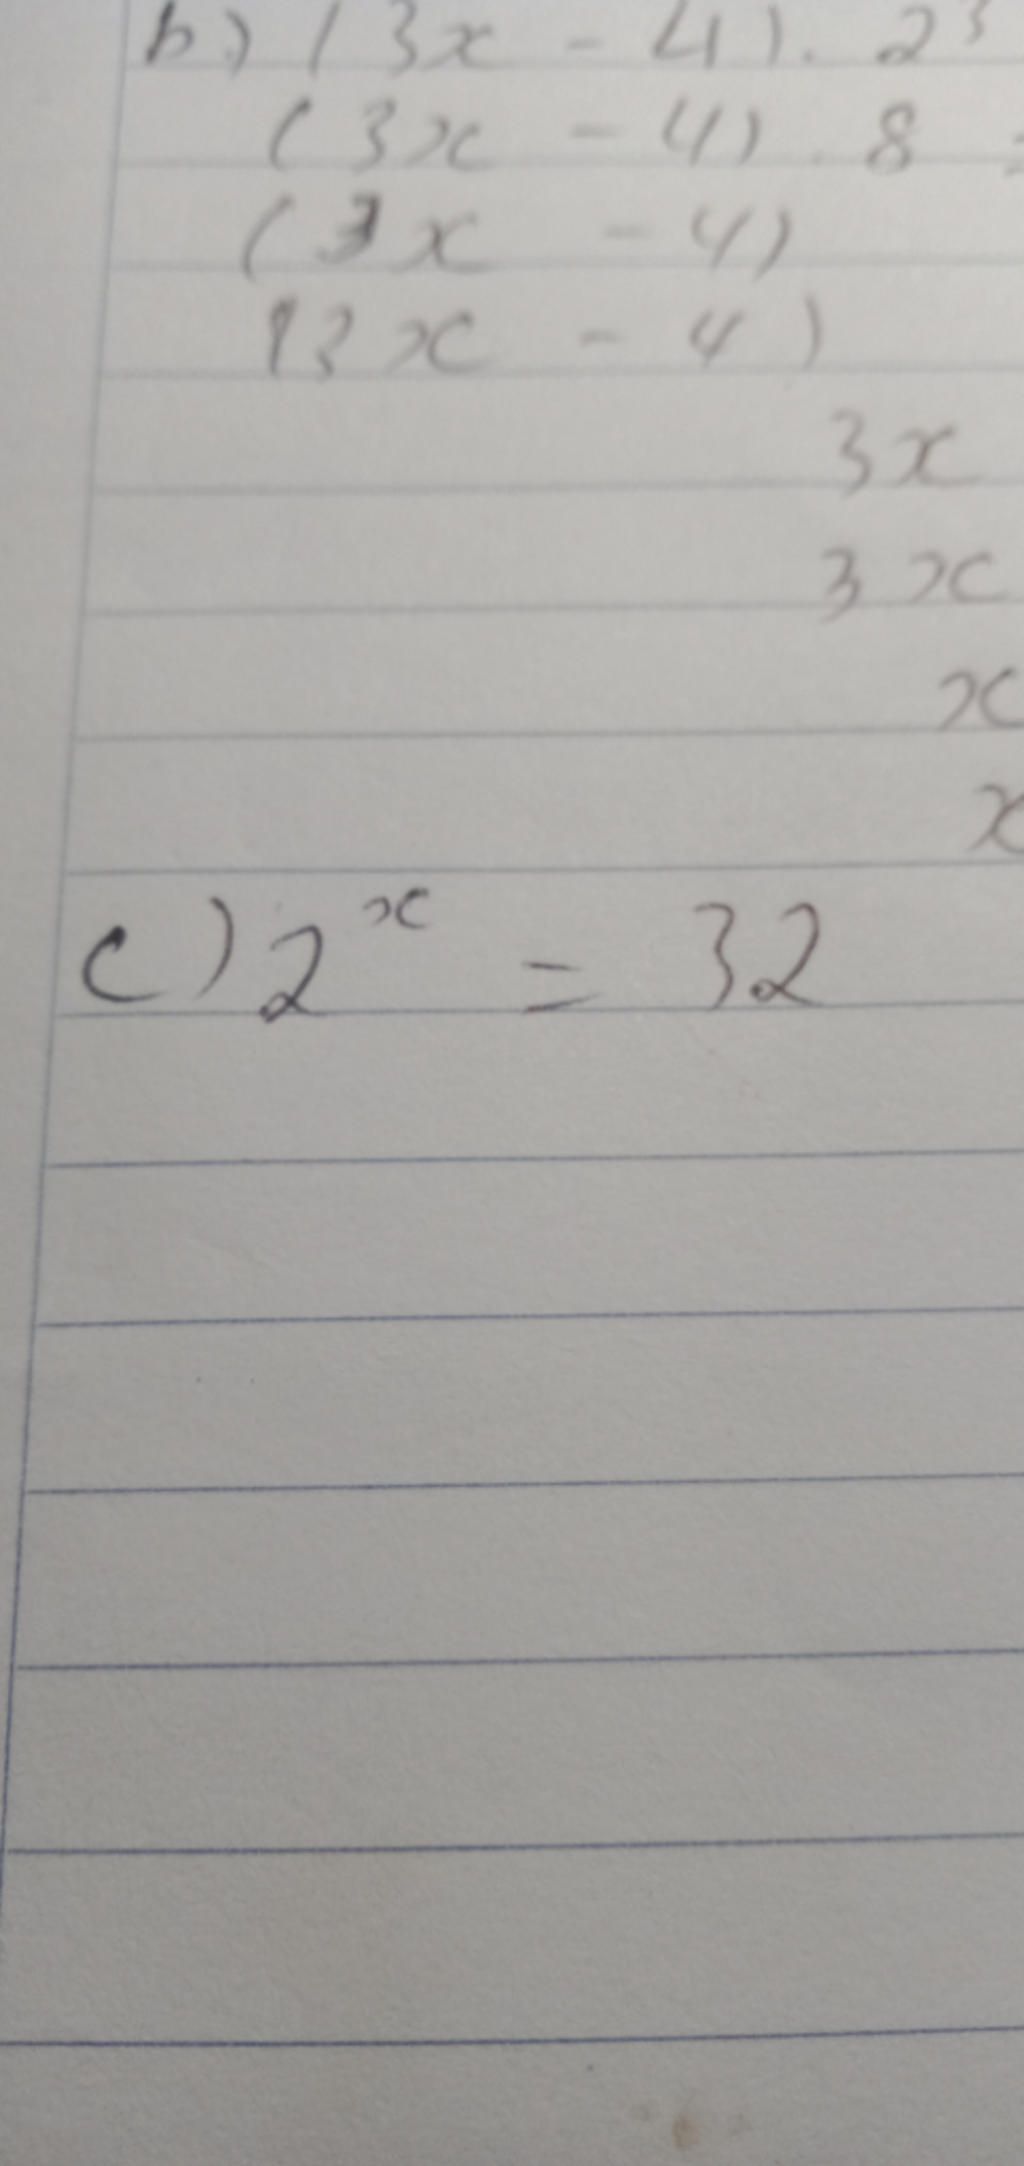 b) (3x - 4). 2³
(3x - 4). 8 =
(3x - 4)
(3x - 4)
3x
3x
x
x
c) 2ˣ = 32